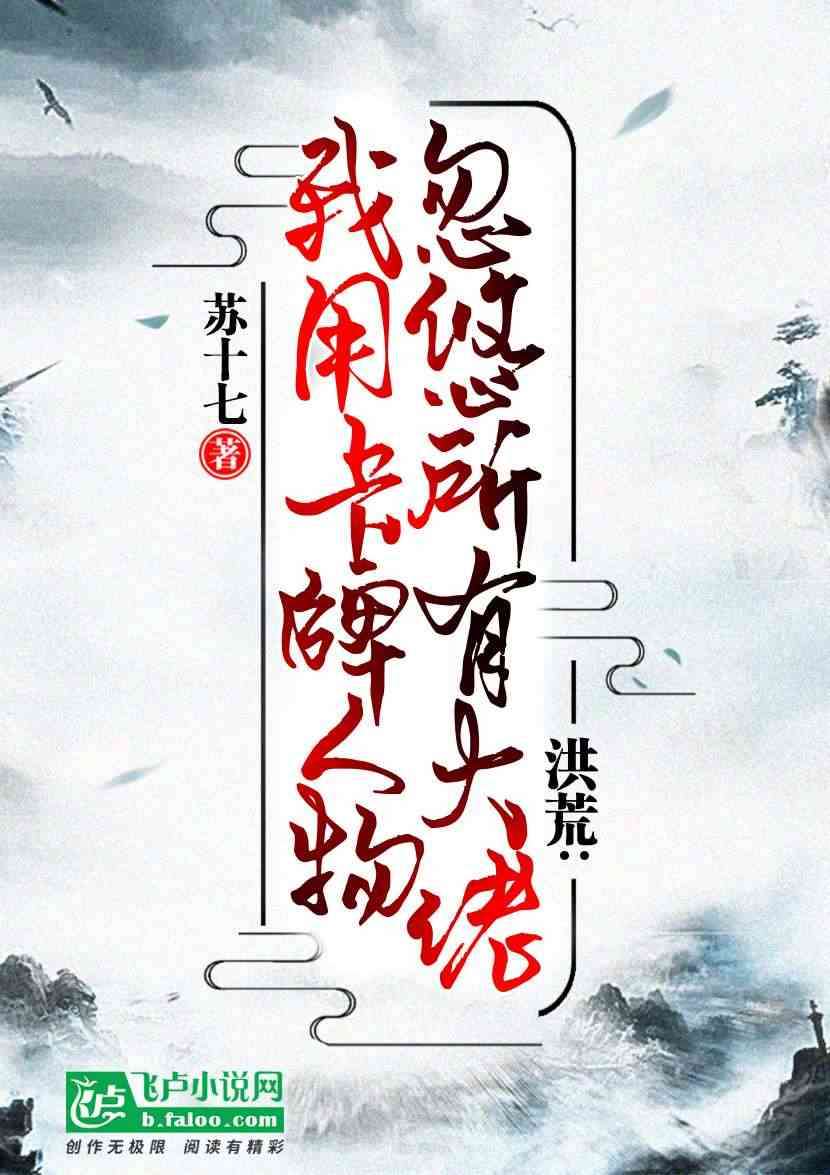 洪荒：
忽悠所有大佬
我用卡牌人物
苏十七
著
飞卢小说网
b.faloo.com
创作无极限 阅读有精彩